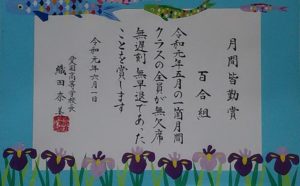 月間皆勤賞
百合組
令和元年五月の一箇月間
クラスの全員が無欠席
無遅刻 無早退であった
ことを賞します
令和元年六月一日
高等学校長
織田奈美